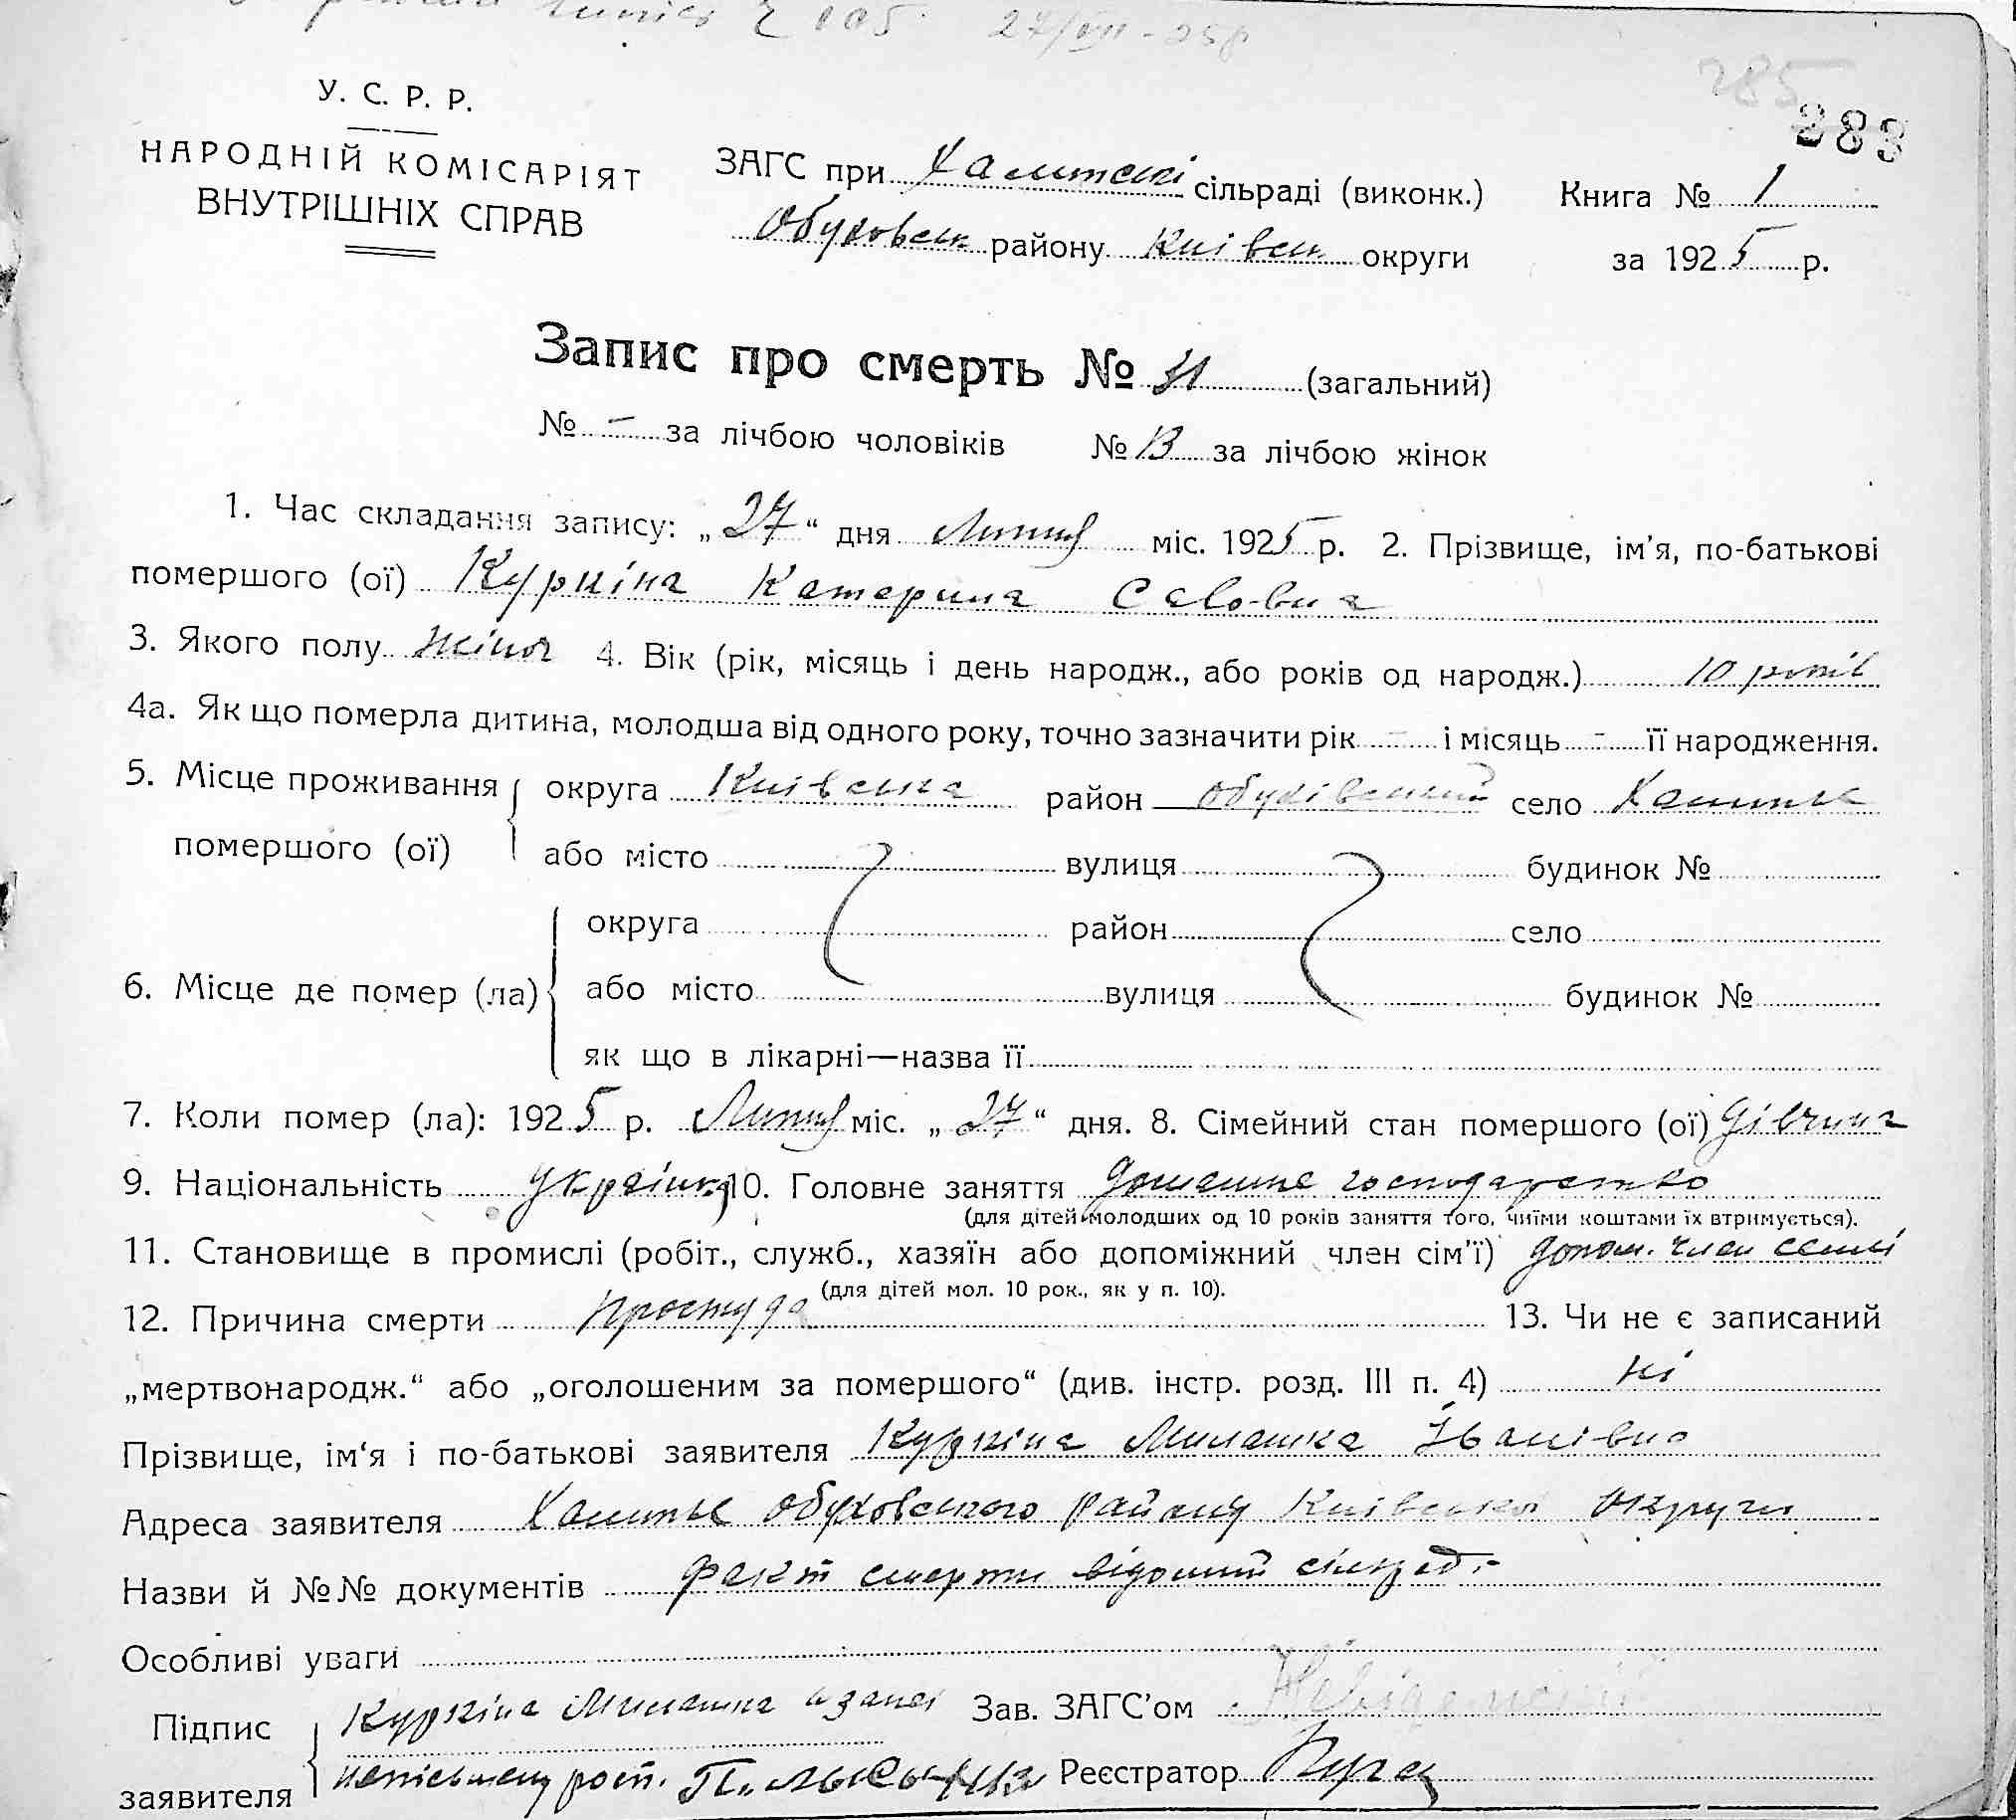 27/VII-25р
285
283
У. С. Р. Р.
НАРОДНІЙ КОМІСАРІЯТ
ВНУТРІШНІХ СПРАВ
ЗАГС при Хамтській сільраді (виконк.) Книга № 1
Обуховськ району Київськ округи за 1925 р.
Запис про смерть № 31 (загальний)
№ – за лічбою чоловіків № 13 за лічбою жінок
1. Час складання запису: „27“ дня Липця міс. 1925 р. 2. Прізвище, ім’я, по-батькові
помершого (ої) Куркіна Катерина Савовна
3. Якого полу жіноч 4. Вік (рік, місяць і день народж., або років од народж.) 10 років
4а. Як що померла дитина, молодша від одного року, точно зазначити рік – і місяць – її народження.
5. Місце проживання округа Київська район Обухівський село
помершого (ої) або місто вулиця будинок №
округа район село
6. Місце де помер (ла) або місто вулиця будинок №
як що в лікарні—назва її
7. Коли помер (ла): 1925 р. Липця міс. „27“ дня. 8. Сімейний стан помершого (ої) Дівчина
9. Національність Українка 10. Головне заняття Домашнє господарство
(для дітей молодших од 10 років заняття того, чиїми коштами їх втримується).
11. Становище в промислі (робіт., служб., хазяїн або допоміжний член сім’ї) допом. член семьї
(для дітей мол. 10 рок., як у п. 10).
12. Причина смерти простуда 13. Чи не є записаний
„мертвонародж.“ або „оголошеним за помершого“ (див. інстр. розд. III п. 4) ні
Прізвище, ім‘я і по-батькові заявителя Куркіна Милашка Іванівна
Адреса заявителя Обуховського району Київської округи
Назви й №№ документів факт смерти відомий сільраді
Особливі уваги
Підпис Куркіна Милашка а за неї Зав. ЗАГС’ом
заявителя неписьмену розп. Реєстратор